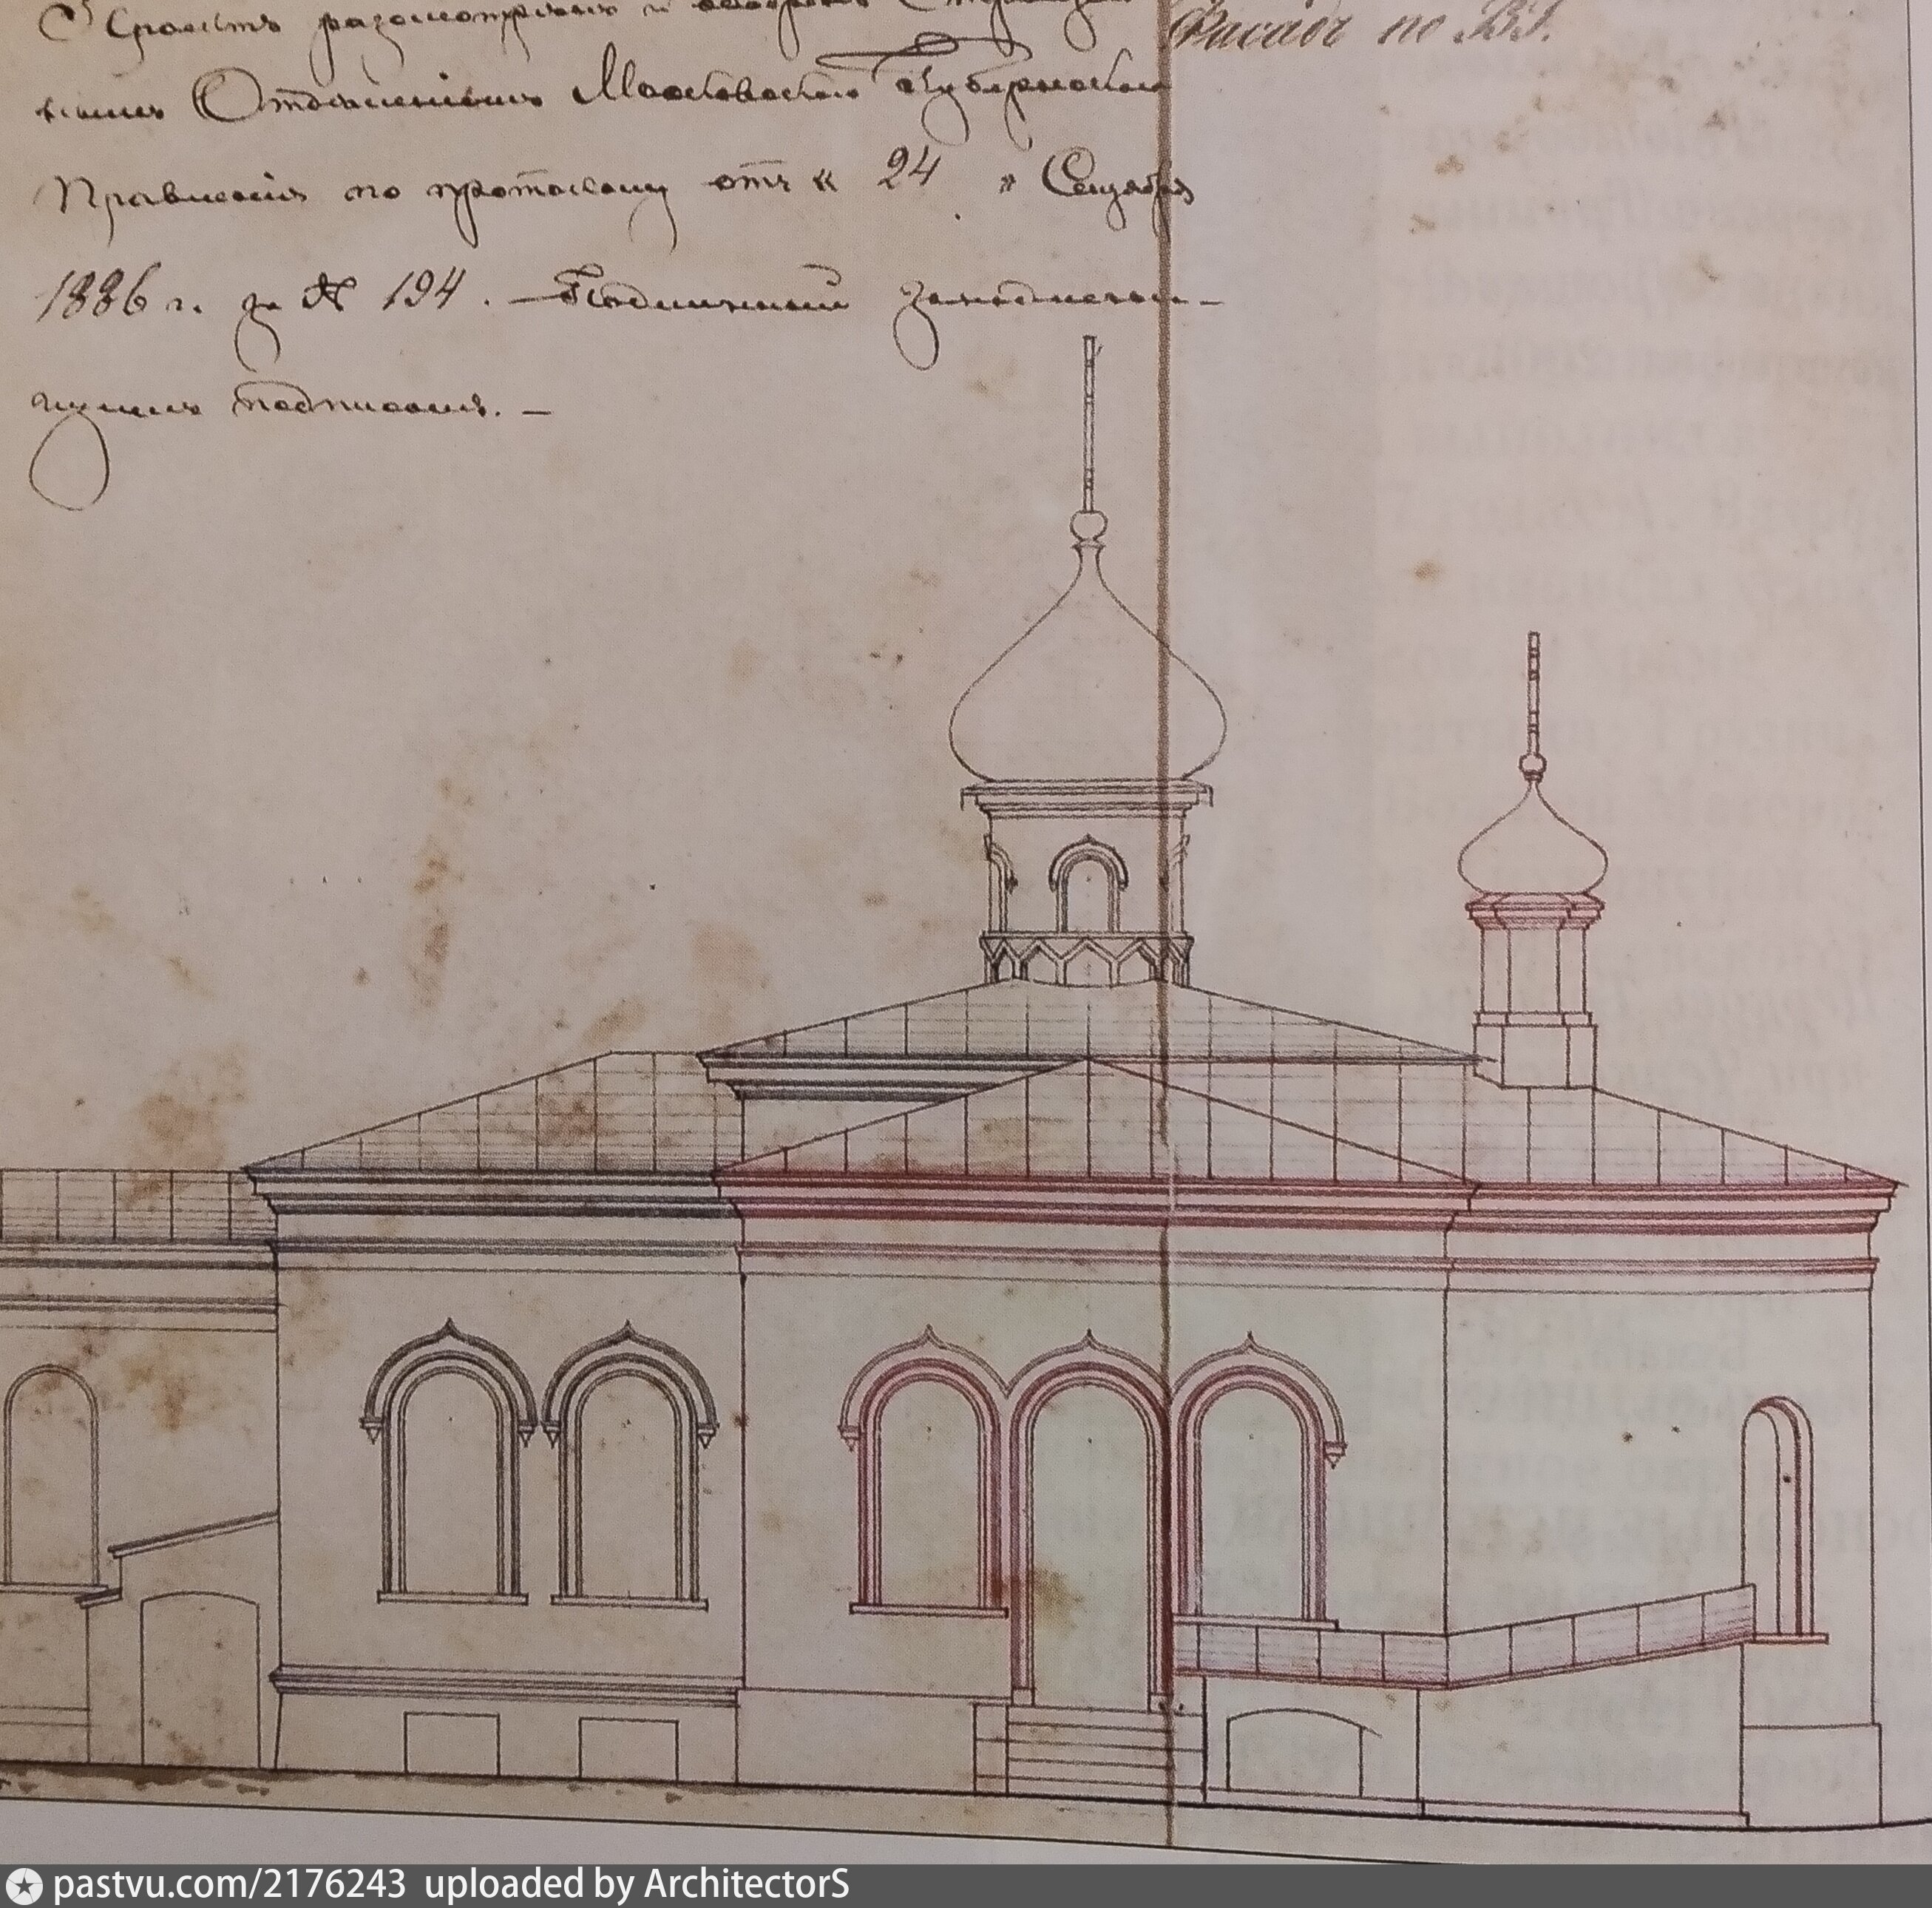 Проектъ разсмотренъ и одобренъ Строитель-
нымъ Отделеніемъ Московскаго Губернскаго
Правленія по протоколу отъ « 24 » Сентября
1886 г. за № 194. — Подлинный за надлежа-
щимъ подписомъ. —
Фасадъ по
pastvu.com/2176243 uploaded by ArchitectorS